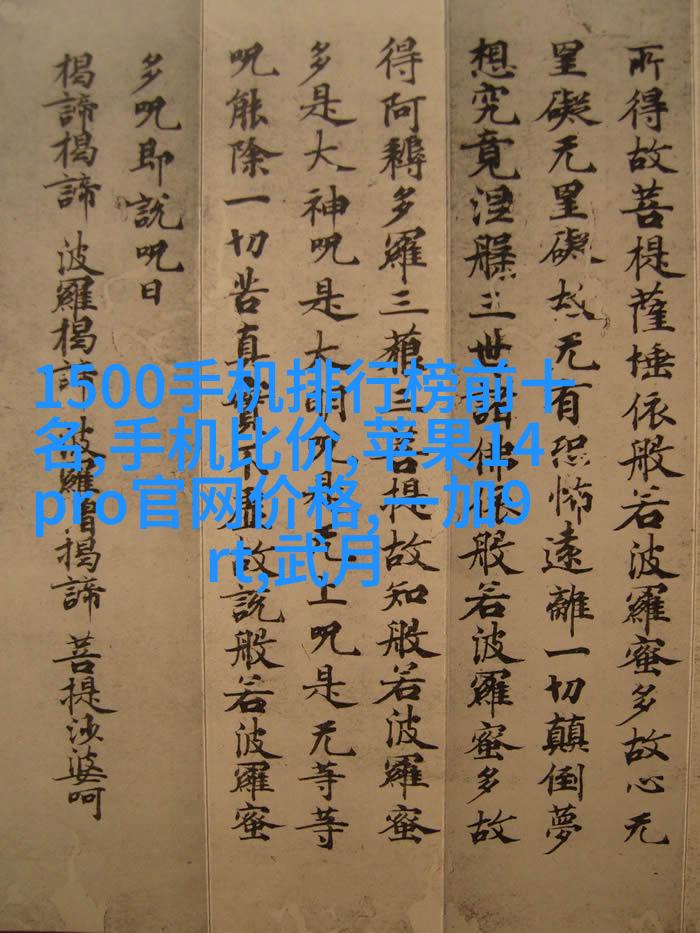 所得故菩提薩埵依般若波羅蜜多故心无
罣礙无罣礙故无有恐怖遠離一切顛倒夢
想究竟涅槃三世諸佛依般若波羅蜜多故
得阿耨多羅三藐三菩提故知般若波羅蜜
多是大神呪是大明呪是无上呪是无等等
呪能除一切苦真實不虛故說般若波羅蜜
多呪即說呪曰
揭諦揭諦 波羅揭諦 波羅僧揭諦 菩提沙婆呵
1500手机排行榜前十
名,手机比价,苹果14
pro官网价格,一加9
rt,武月